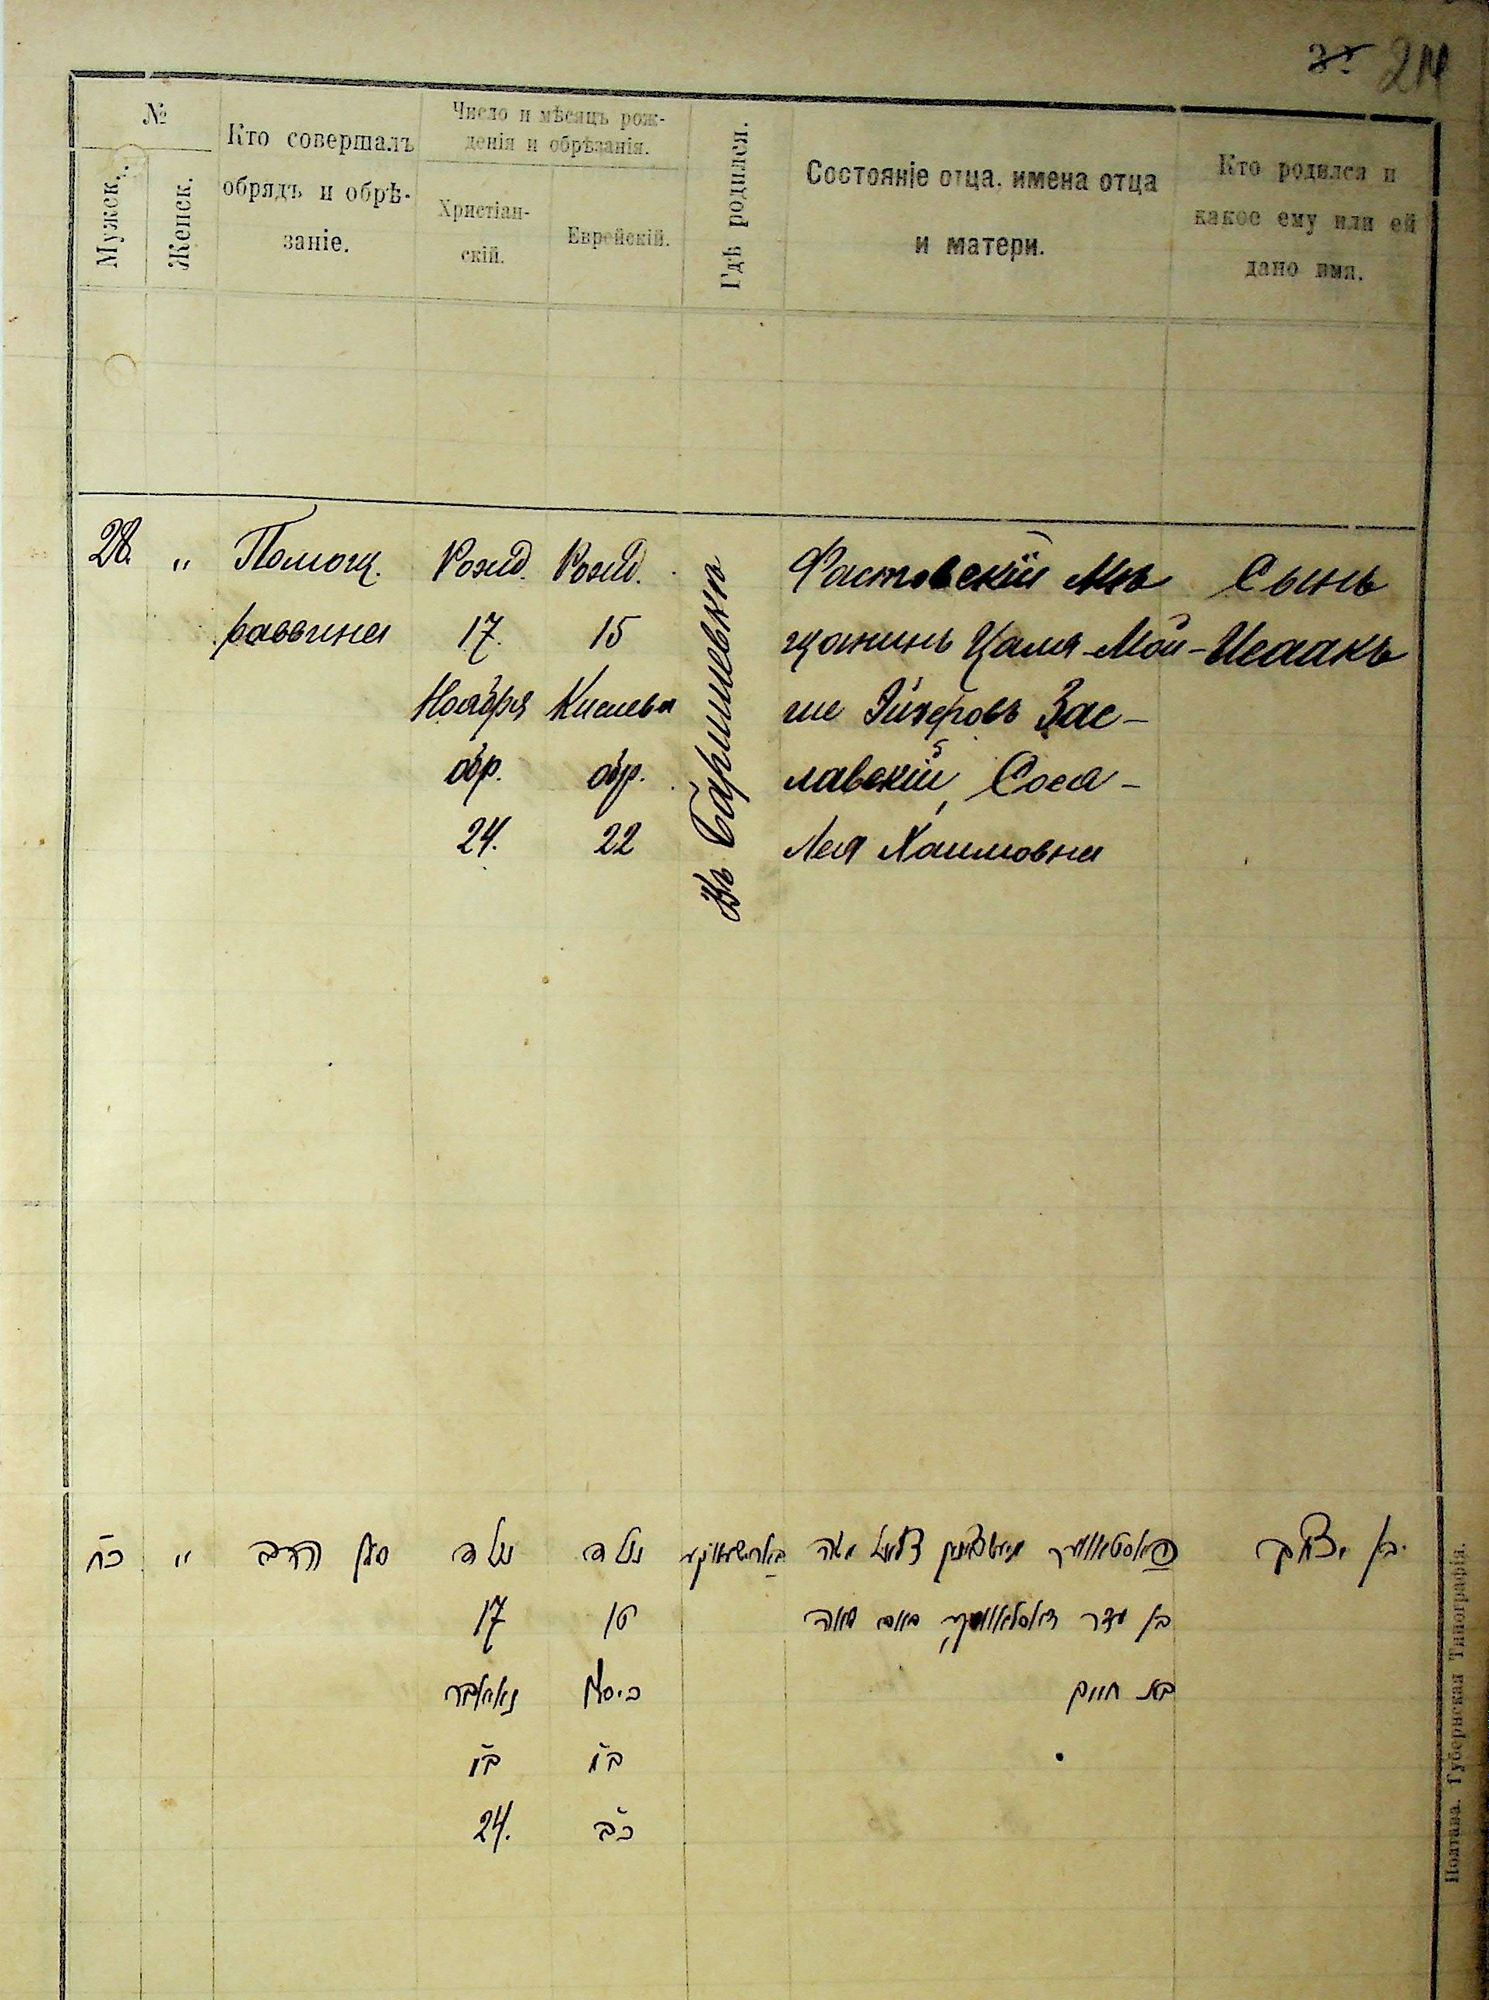 31 24
№
Мужск.
Женск.
Кто совершалъ
обрядъ и обрѣ-
заніе.
Число и мѣсяцъ рож-
денія и обрѣзанія.
Христіан-
скій.
Еврейскій.
Гдѣ родился.
Состояніе отца, имена отца
и матери.
Кто родился и
какое ему или ей
дано имя.
28.
"
Помощ.
раввина
Рожд.
17.
Ноября
обр.
24.
Рожд.
15
Кислева
обр.
22
Въ Баришевкѣ
Фастовскій мѣ
щанинъ Цаля-Мой-
ше Эйзеровъ Зас-
лавскій, Сося-
Лея Хаимовна
Сынъ
Исаакъ
כ״ח
"
סגן הרב
נולד
17
נאיאבר
24.
נולד
ט״ו
כיסלו
כ״ב
בארישאווקע
משה
בן
לאה
בת חיים
בן יצחק
Полтава. Губернская Типографія.